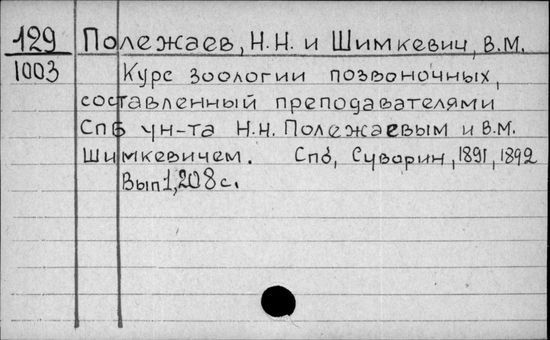 129 Полежаев, Н.Н. и Шимкевич, В.М.
1003 Курс зоологии позвоночных,
составленный преподавателями
Спб ун-та Н.Н. Полежаевым и В.М.
Шимкевичем. Спб, Суворин, 1891, 1892
Вып 1, 208 с.